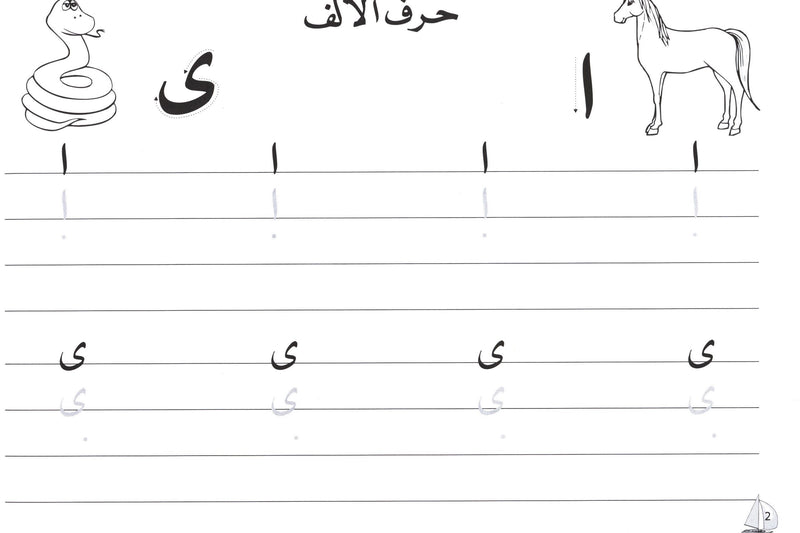 حرف الألف
ا ى
ا ا ا ا
ا ا ا ا
ى ى ى ى
ى ى ى ى
2